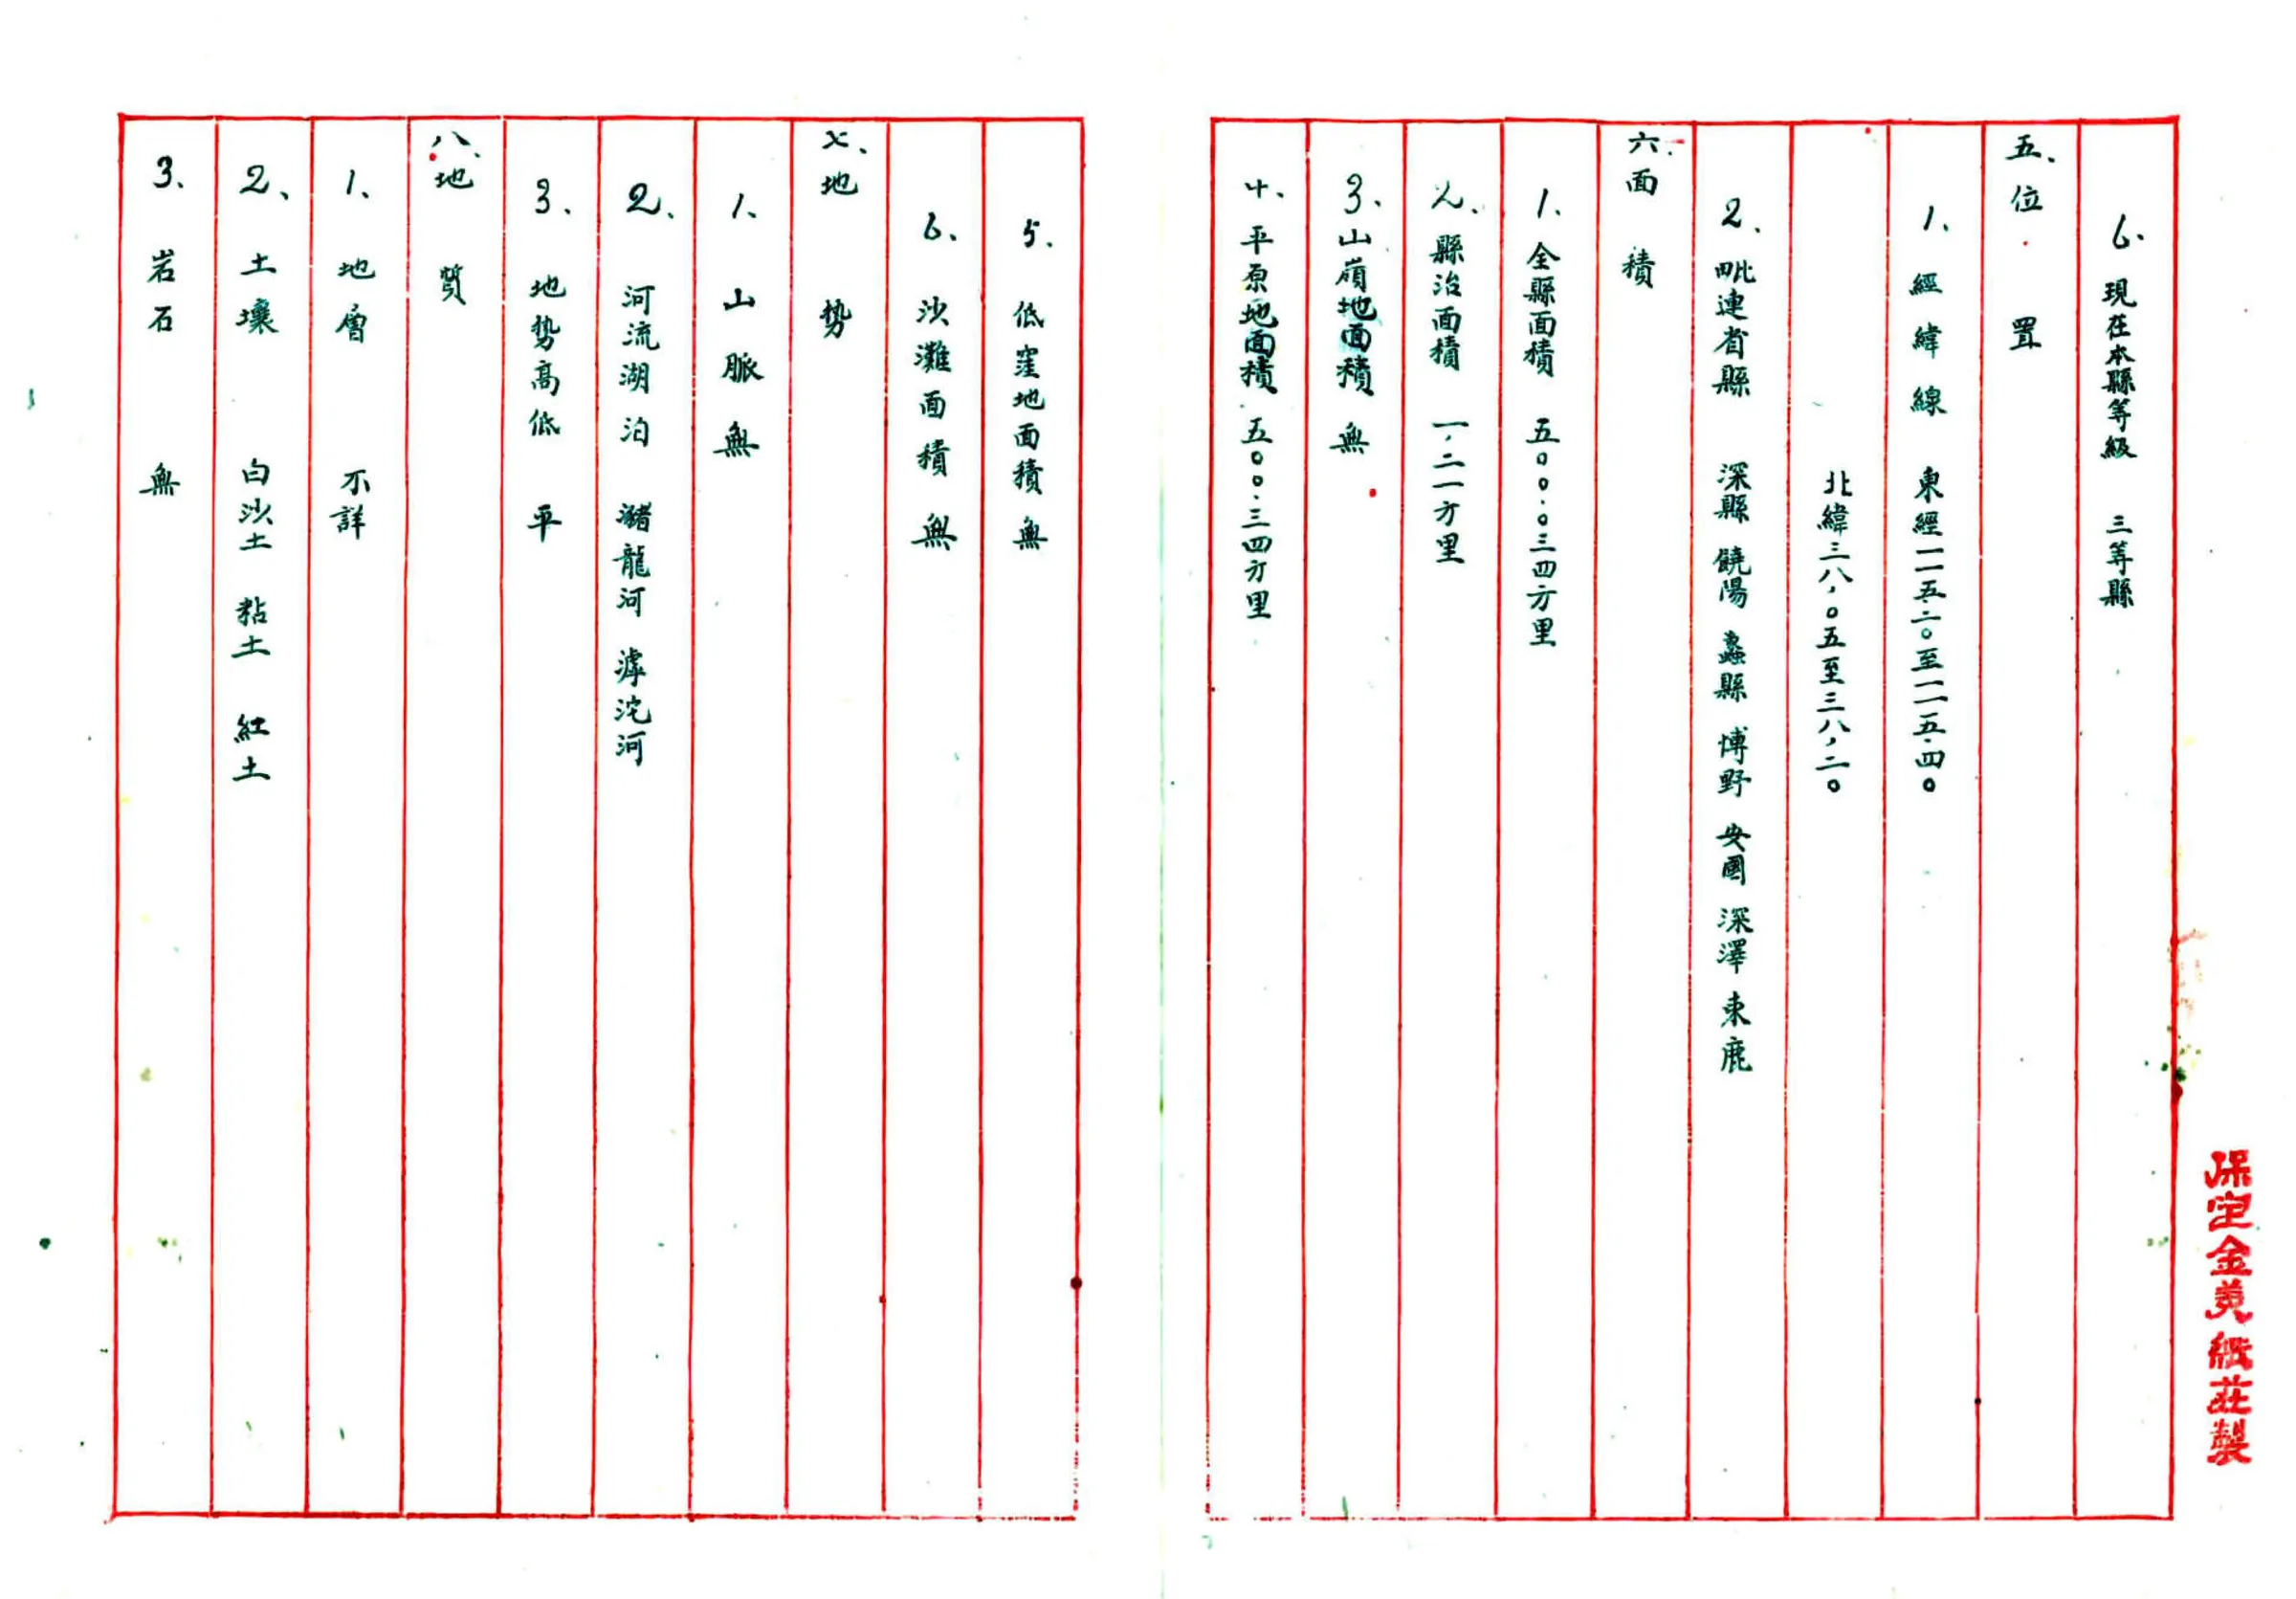 6. 現在本縣等級 三等縣
五、位置
1、經緯線 東經一一五·二〇至一一五·四〇
北緯三八,〇五至三八,二〇
2、毗連省縣 深縣 饒陽 蠡縣 博野 安國 深澤 束鹿
六、面積
1、全縣面積 五〇〇·〇三四方里
2、縣治面積 一,二一方里
3、山嶺地面積 無
4、平原地面積 五〇〇·三四方里
5、低窪地面積 無
6、沙灘面積 無
七、地勢
1、山脈 無
2、河流湖泊 瀦龍河 滹沱河
3、地勢高低 平
八、地質
1、地層 不詳
2、土壤 白沙土 粘土 紅土
3、岩石 無
保定金美紙莊製